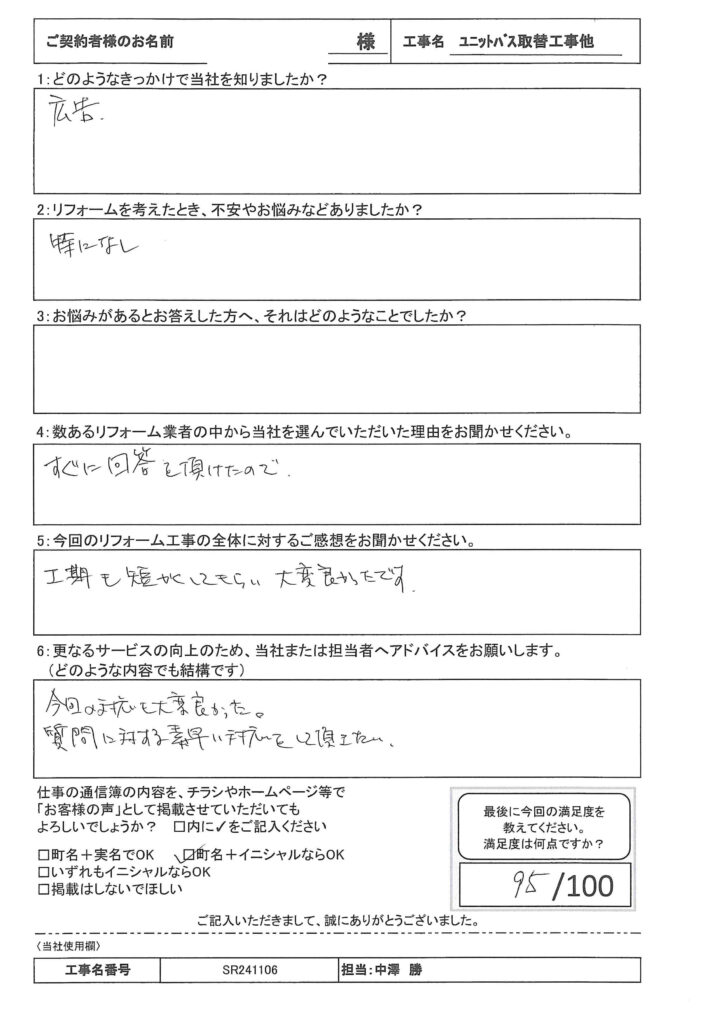 ご契約者様のお名前 様 工事名 ユニットバス取替工事他
1:どのようなきっかけで当社を知りましたか?
広告.
2:リフォームを考えたとき、不安やお悩みなどありましたか?
特になし
3:お悩みがあるとお答えした方へ、それはどのようなことでしたか?
4:数あるリフォーム業者の中から当社を選んでいただいた理由をお聞かせください。
すぐに回答を頂けたので.
5:今回のリフォーム工事の全体に対するご感想をお聞かせください。
工期も短かくしてもらい大変良かったです.
6:更なるサービスの向上のため、当社または担当者へアドバイスをお願いします。
(どのような内容でも結構です)
今回の対応も大変良かった。
質問に対する素早い対応をして頂きたい、
仕事の通信簿の内容を、チラシやホームページ等で
「お客様の声」として掲載させていただいても
よろしいでしょうか? □内に✓をご記入ください
□町名+実名でOK ☑町名+イニシャルならOK
□いずれもイニシャルならOK
□掲載はしないでほしい
最後に今回の満足度を
教えてください。
満足度は何点ですか?
95/100
ご記入いただきまして、誠にありがとうございました。
〈当社使用欄〉
工事名番号 SR241106 担当:中澤 勝